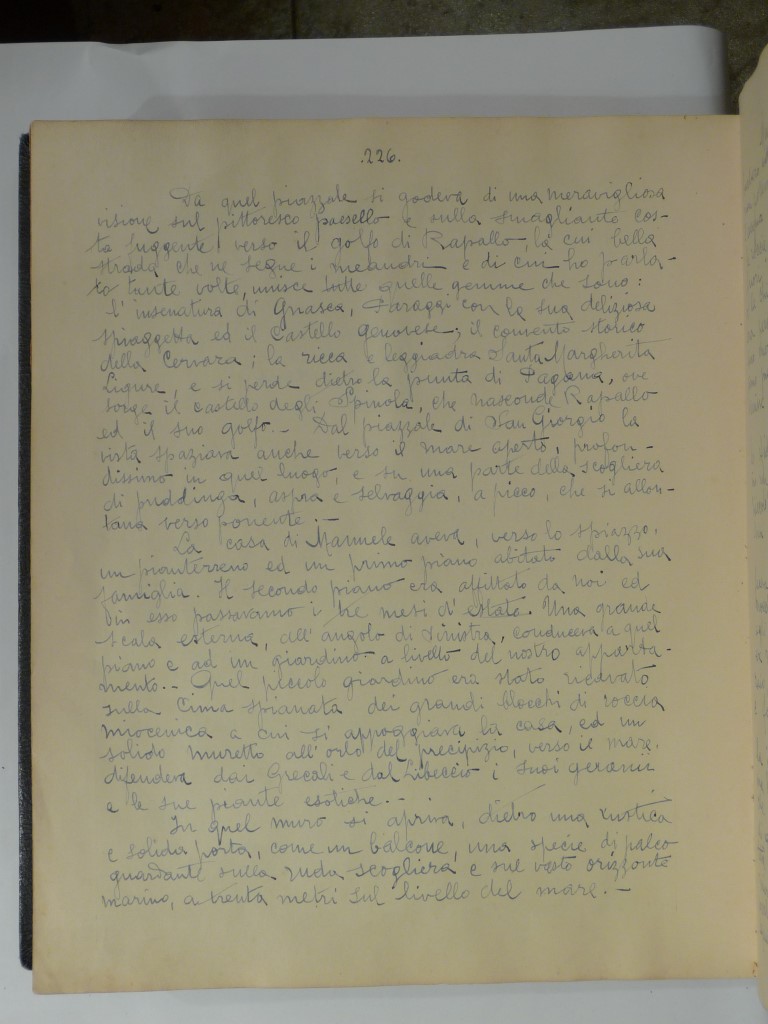 .226.
Da quel piazzale si godeva di una meravigliosa
visione sul pittoresco paesello e sulla smagliante cos-
ta fuggente verso il golfo di Rapallo, la cui bella
strada che ne segue i meandri e di cui ho parla-
to tante volte, unisce sette quelle gemme che sono:
l'insenatura di Gnasca, Paraggi con la sua deliziosa
spiaggetta ed il Castello genovese; il convento storico
della Cervara; la ricca e leggiadra Santa Margherita
Ligure, e si perde dietro la punta di Pagana, ove
sorge il castello degli Spinola, che nasconde Rapallo
ed il suo golfo. - Dal piazzale di San Giorgio la
vista spaziava anche verso il mare aperto, profon-
dissimo in quel luogo, e su una parte della scogliera
di puddinga, aspra e selvaggia, a picco, che si allon-
tana verso ponente. -
La casa di Manuele aveva, verso lo spiazzo,
un pianterreno ed un primo piano abitato dalla sua
famiglia. Il secondo piano era affittato da noi ed
in esso passavamo i tre mesi d'estate. Una grande
scala esterna, all'angolo di sinistra, conduceva a quel
piano e ad un giardino a livello del nostro apparta-
mento. - Quel piccolo giardino era stato ricavato
sulla cima spianata dei grandi blocchi di roccia
miocenica a cui si appoggiava la casa, ed un
solido muretto all'orlo del precipizio, verso il mare,
difendeva dai Grecali e dal Libeccio i suoi gerani
e le sue piante esotiche. -
In quel muro si apriva, dietro una rustica
e solida porta, come un balcone, una specie di palco
guardante sulla ruda scogliera e sul vasto orizzonte
marino, a trenta metri sul livello del mare. -